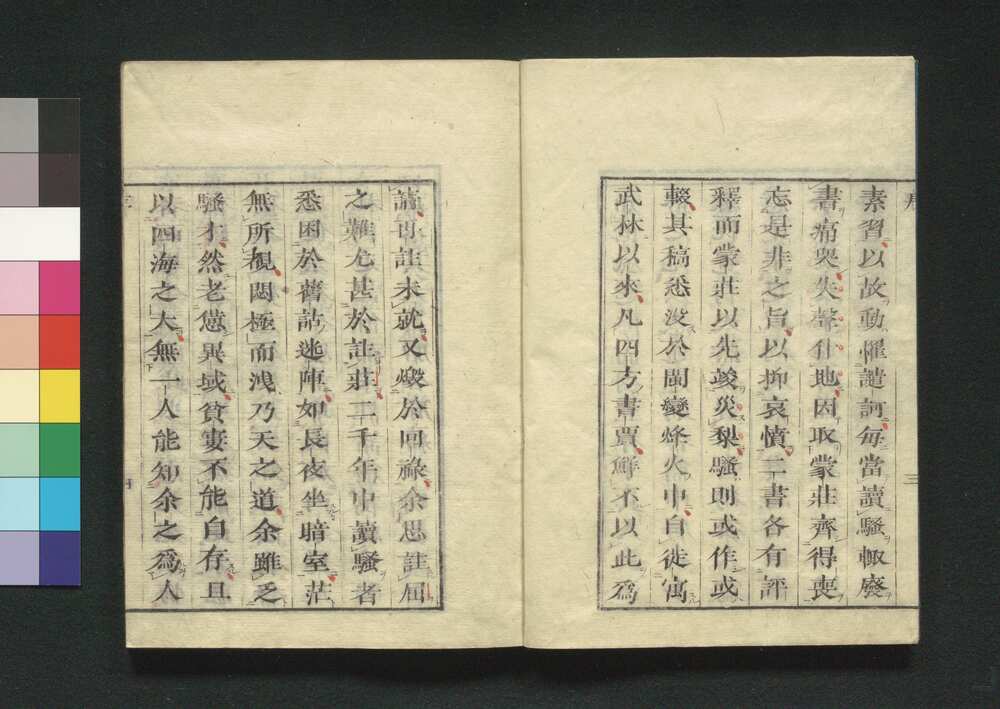 素習以故動懼譴訶每當讀騷輙廢
書痛哭失聲仆地因取蒙莊齊得喪
忘是非之旨以抑哀憤二書各有評
釋而蒙莊以先竣災梨騷則或作或
輟其稿悉沒於閩變烽火中自徙寓
武林以來凡四方書賈鮮不以此爲
請再註未就又燬於回祿余思註屈
之難尤甚於註莊二千年中讀騷者
悉困於舊詁迷陣如長夜坐暗室茫
無所視悶極而洩乃天之道余雖乏
騷才然老憊異域貧窶不能自存且
以四海之大無一人能知余之爲人